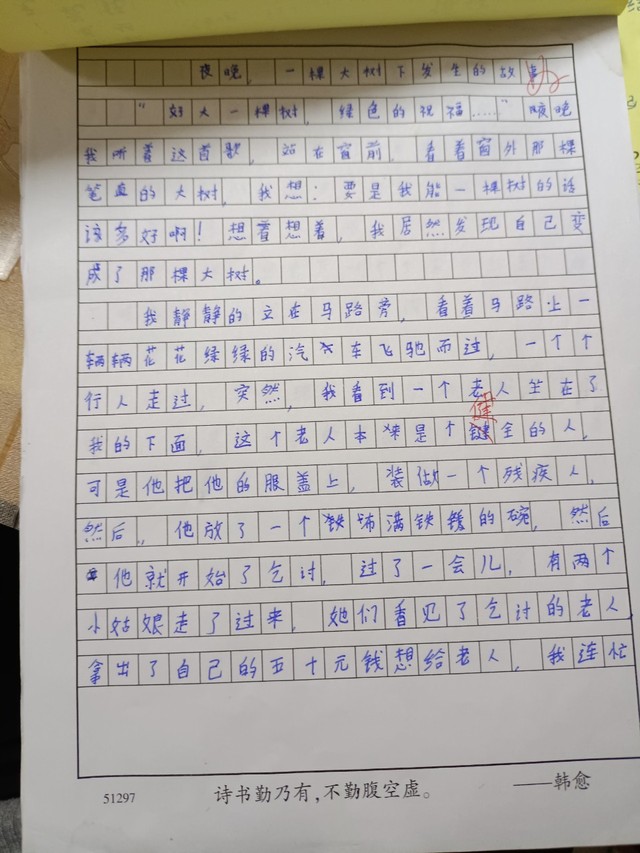 夜晚,一棵大树下发生的故事
“好大一棵树,绿色的祝福……”夜晚
我听着这首歌,站在窗前,看着窗外那棵
笔直的大树,我想:要是我能一棵树的话
该多好啊!想着想着,我居然发现自己变
成了那棵大树。
我静静的立在马路旁,看着马路上一
辆辆花花绿绿的汽车飞驰而过,一个个
行人走过,突然,我看到一个老人坐在了
健
我的下面,这个老人本来是个全的人,
可是他把他的服盖上,装做一个残疾人,
然后,他放了一个铁沛满铁锈的碗,然后
他就开始了乞讨,过了一会儿,有两个
小姑娘走了过来,她们看见了乞讨的老人
拿出了自己的五十元钱想给老人,我连忙
51297
诗书勤乃有,不勤腹空虚。
——韩愈